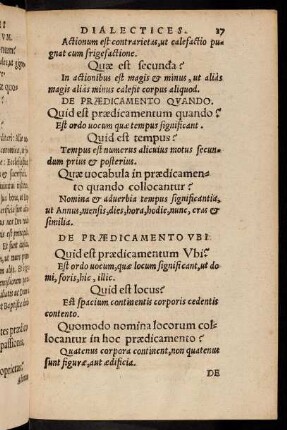 DIALECTICES. 17
Actionum est contrarietas, ut calefactio pu-
gnat cum frigefactione.
Quæ est secunda?
In actionibus est magis & minus, ut aliâs
magis aliâs minus calefit corpus aliquod.
DE PRÆDICAMENTO QVANDO.
Quid est prædicamentum quando?
Est ordo uocum quæ tempus significant.
Quid est tempus?
Tempus est numerus alicuius motus secun-
dum prius & posterius.
Quæ uocabula in prædicamen-
to quando collocantur?
Nomina & aduerbia tempus significantia,
ut Annus, mensis, dies, hora, hodie, nunc, cras &
similia.
DE PRÆDICAMENTO VBI.
Quid est prædicamentum Vbi?
Est ordo uocum, quæ locum significant, ut do
mi, foris, hîc, illic.
Quid est locus?
Est spacium continentis corporis cedentis
contento.
Quomodo nomina locorum col-
locantur in hoc prædicamento?
Quatenus corpora continent, non quatenus
sunt figuræ, aut ædificia.
DE